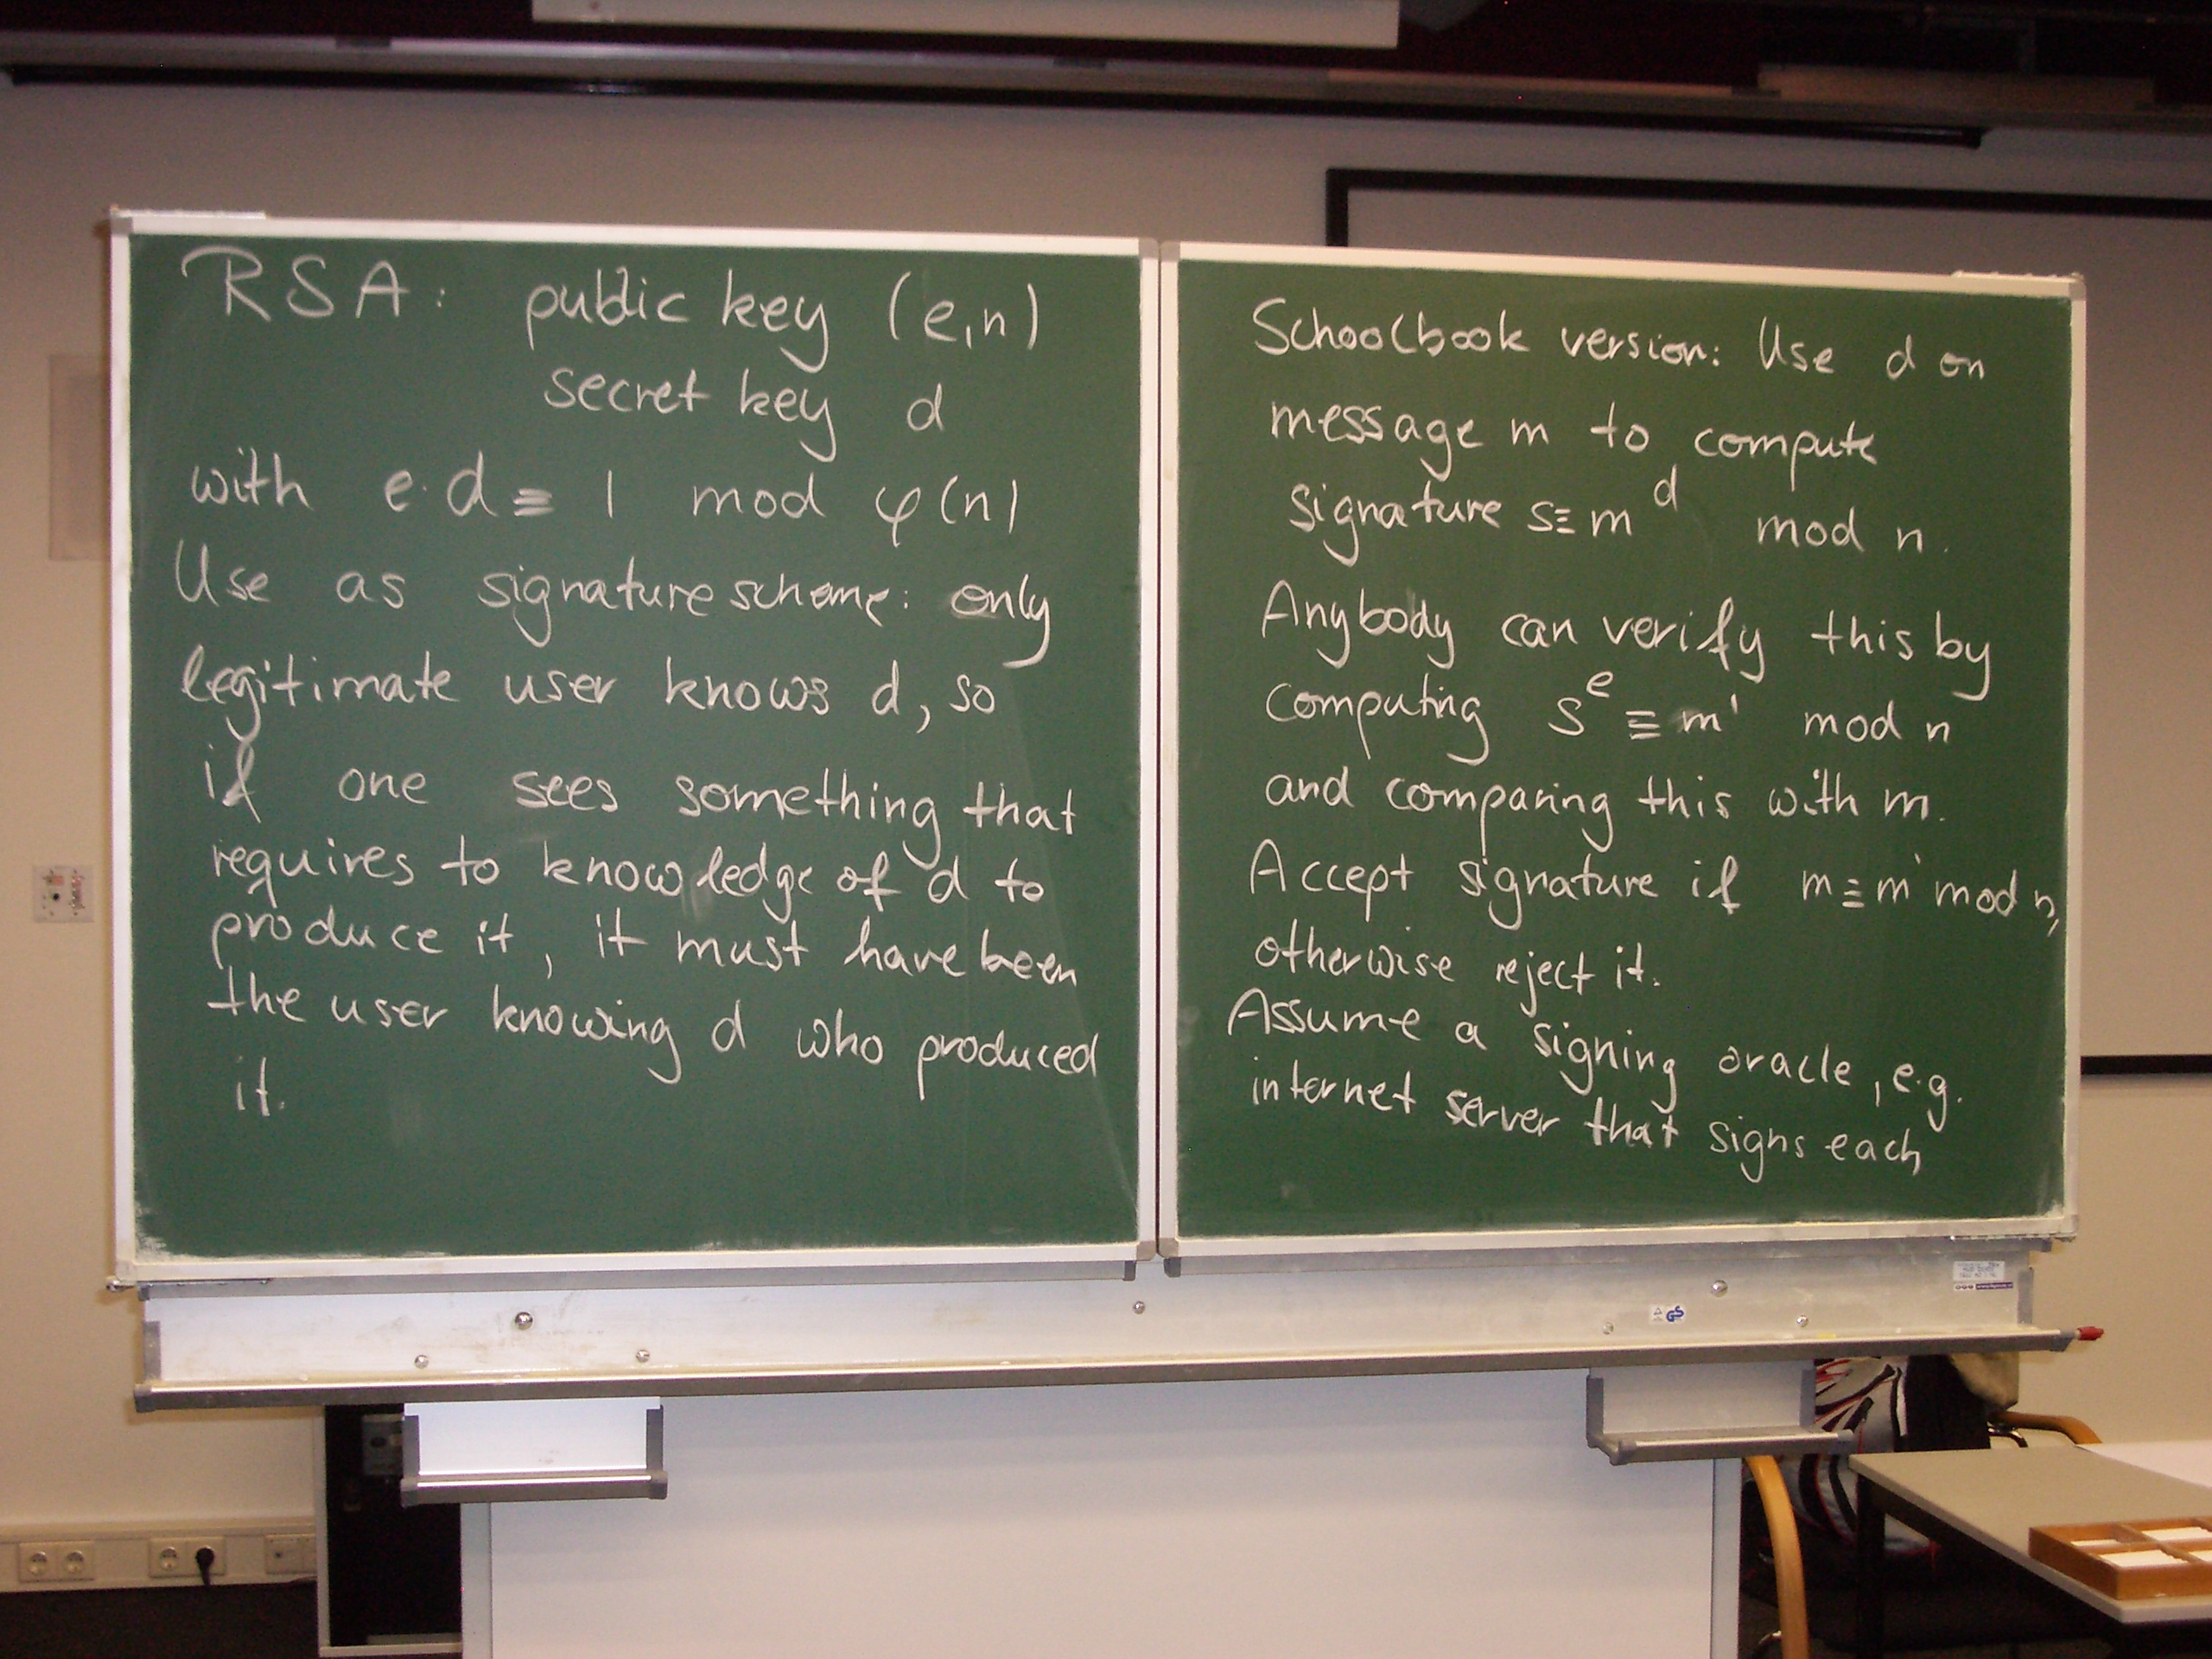 RSA: public key (e,n)
secret key d
with e·d ≡ 1 mod φ(n)
Use as signature scheme: only
legitimate user knows d, so
if one sees something that
requires to knowledge of d to
produce it, it must have been
the user knowing d who produced
it.
Schoolbook version: Use d on
message m to compute
signature s≡m^d mod n.
Anybody can verify this by
computing s^e ≡ m' mod n
and comparing this with m.
Accept signature if m≡m' mod n,
otherwise reject it.
Assume a signing oracle, e.g.
internet server that signs each